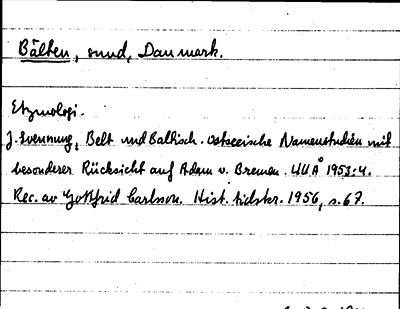 Bälten, sund, Danmark.
Etymologi.
J. Svennung, Belt und Baltisch. Ostseeische Namenstudien mit
besonderer Rücksicht auf Adam v. Bremen. UUÅ 1953:4.
Rec. av Gottfrid Carlsson. Hist. tidskr. 1956, s. 67.